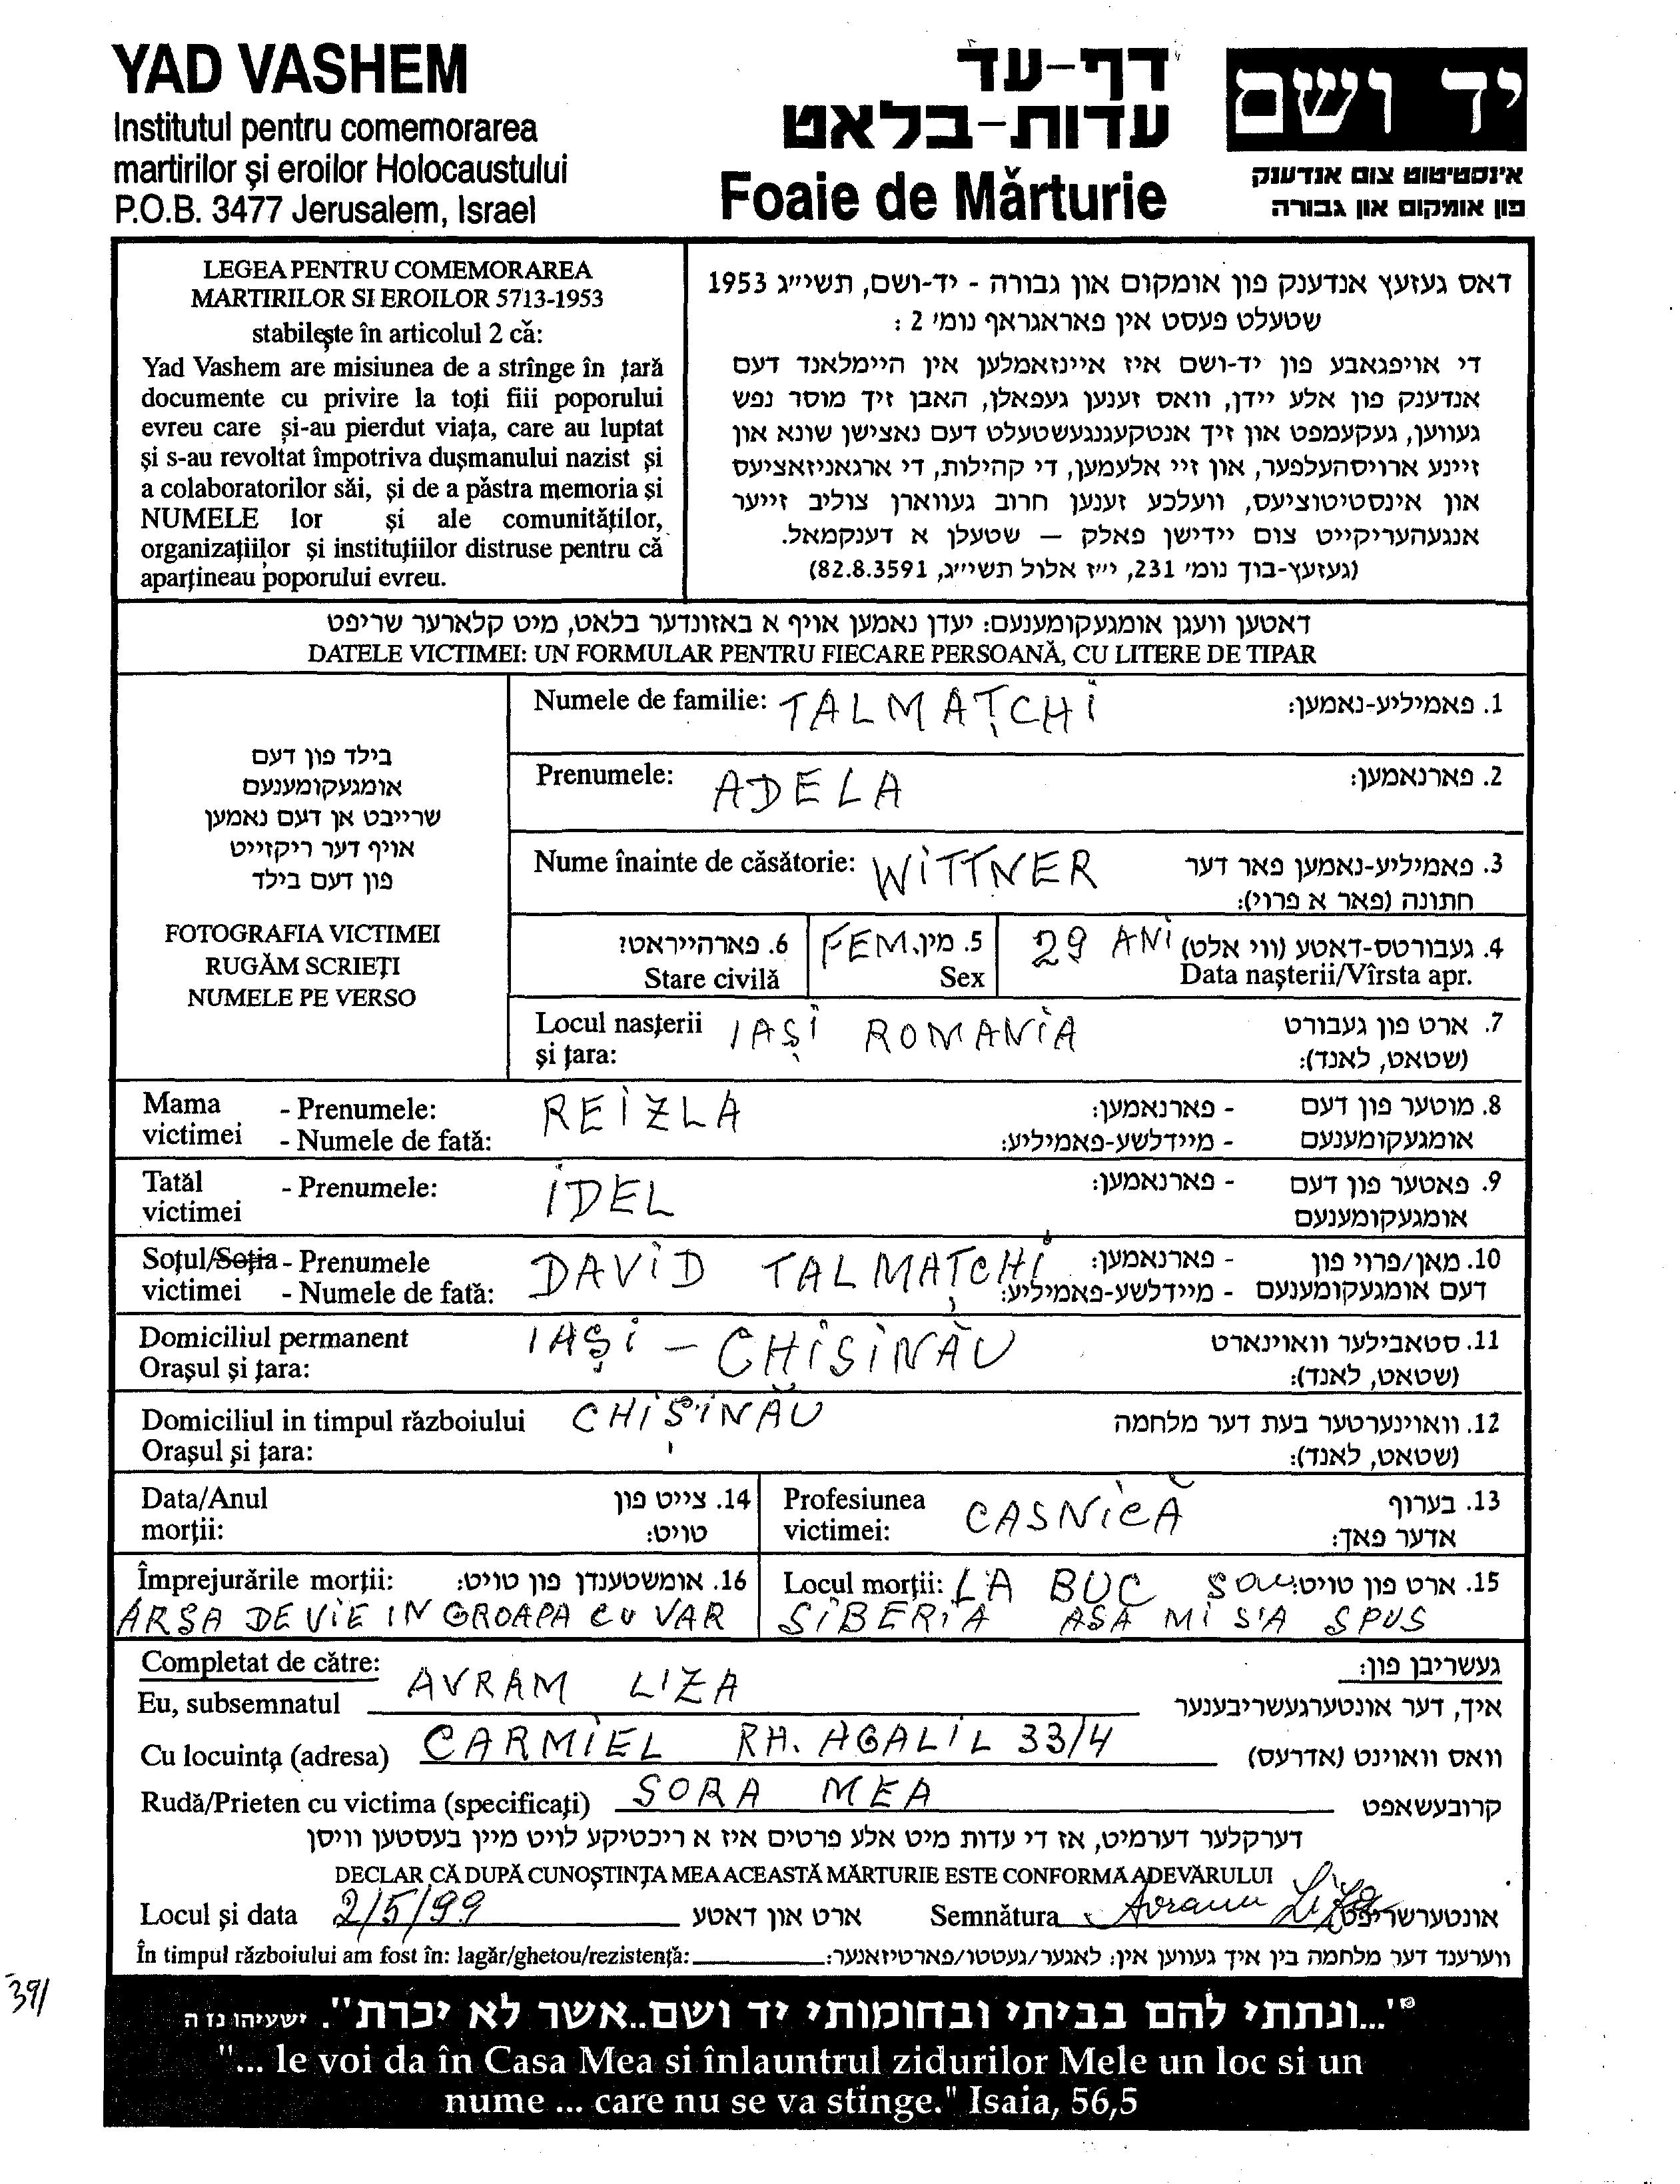 YAD VASHEM
Institutul pentru comemorarea
martirilor şi eroilor Holocaustului
P.O.B. 3477 Jerusalem, Israel
דף-עד
עדות-בלאט
Foaie de Mărturie
יד ושם
אינסטיטוט צום אנדענק
פון אומקום און גבורה
LEGEA PENTRU COMEMORAREA
MARTIRILOR SI EROILOR 5713-1953
stabileşte în articolul 2 că:
Yad Vashem are misiunea de a strînge în ţară
documente cu privire la toţi fiii poporului
evreu care şi-au pierdut viaţa, care au luptat
şi s-au revoltat împotriva duşmanului nazist şi
a colaboratorilor săi, şi de a păstra memoria şi
NUMELE lor şi ale comunităţilor,
organizaţiilor şi instituţiilor distruse pentru că
aparţineau poporului evreu.
דאס געזעץ אנדענק פון אומקום און גבורה - יד-ושם, תשי״ג 1953
שטעלט פעסט אין פאראגראף נומ׳ 2 :
די אויפגאבע פון יד-ושם איז איינזאמלען אין היימלאנד דעם
אנדענק פון אלע יידן, וואס זענען געפאלן, האבן זיך מוסר נפש
געווען, געקעמפט און זיך אנטקעגנגעשטעלט דעם נאצישן שונא און
זיינע ארויסהעלפער, און זיי אלעמען, די קהילות, די ארגאניזאציעס
און אינסטיטוציעס, וועלכע זענען חרוב געווארן צוליב זייער
אנגעהעריקייט צום יידישן פאלק — שטעלן א דענקמאל.
(געזעץ-בוך נומ׳ 231, י״ז אלול תשי״ג, 82.8.3591)
דאטען וועגן אומגעקומענעם: יעדן נאמען אויף א באזונדער בלאט, מיט קלארער שריפט
DATELE VICTIMEI: UN FORMULAR PENTRU FIECARE PERSOANĂ, CU LITERE DE TIPAR
בילד פון דעם
אומגעקומענעם
שרייבט אן דעם נאמען
אויף דער ריקזייט
פון דעם בילד
FOTOGRAFIA VICTIMEI
RUGĂM SCRIEŢI
NUMELE PE VERSO
Numele de familie: TALMAŢCHI 1. פאמיליע-נאמען:
Prenumele: ADELA 2. פארנאמען:
Nume înainte de căsătorie: WITTNER 3. פאמיליע-נאמען פאר דער
חתונה (פאר א פרוי):
6. פארהייראט? 5. מין. FEM 29 ANI 4. געבורטס-דאטע (ווי אלט)
Stare civilă Sex Data naşterii/Vîrsta apr.
Locul naşterii IAŞI ROMANIA 7. ארט פון געבורט
şi ţara: (שטאט, לאנד):
Mama - Prenumele: REIZLA - פארנאמען: 8. מוטער פון דעם
victimei - Numele de fată: - מיידלשע-פאמיליע: אומגעקומענעם
Tatăl - Prenumele: IDEL - פארנאמען: 9. פאטער פון דעם
victimei אומגעקומענעם
Soţul/Soţia - Prenumele DAVID TALMAŢCHI - פארנאמען: 10. מאן/פרוי פון
victimei - Numele de fată: - מיידלשע-פאמיליע: דעם אומגעקומענעם
Domiciliul permanent IAŞI - CHIŞINĂU 11. סטאבילער וואוינארט
Oraşul şi ţara: (שטאט, לאנד):
Domiciliul in timpul războiului CHIŞINĂU 12. וואוינערטער בעת דער מלחמה
Oraşul şi ţara: (שטאט, לאנד):
Data/Anul 14. צייט פון Profesiunea CASNICĂ 13. בערוף
morţii: טויט: victimei: אדער פאך:
Împrejurările morţii: 16. אומשטענדן פון טויט: Locul morţii: LA BUC SAU 15. ארט פון טויט:
ARSA DE VIE IN GROAPA CU VAR SIBERIA ASA MI S'A SPUS
Completat de către: געשריבן פון:
Eu, subsemnatul AVRAM LIZA איך, דער אונטערגעשריבענער
Cu locuinţa (adresa) CARMIEL RH. AGALIL 33/4 וואס וואוינט (אדרעס)
Rudă/Prieten cu victima (specificaţi) SORA MEA קרובעשאפט
דערקלער דערמיט, אז די עדות מיט אלע פרטים איז א ריכטיקע לויט מיין בעסטען וויסן
DECLAR CĂ DUPĂ CUNOŞTINŢA MEA ACEASTĂ MĂRTURIE ESTE CONFORMA ADEVĂRULUI
Locul şi data 2/5/99 ארט און דאטע Semnătura Avram Liza אונטערשריפט
În timpul războiului am fost în: lagăr/ghetou/rezistenţă: ווערענד דער מלחמה בין איך געווען אין: לאגער/געטטו/פארטיזאנער:
39/
"...ונתתי להם בביתי ובחומותי יד ושם..אשר לא יכרת". ישעיהו נז ה
"... le voi da în Casa Mea si înlauntrul zidurilor Mele un loc si un
nume ... care nu se va stinge." Isaia, 56,5